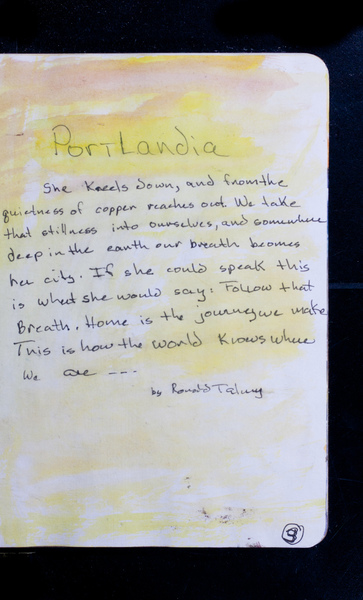 PortLandia
She Kneels down, and from the
quietness of copper reaches out. We take
that stillness into ourselves, and somewhere
deep in the earth our breath becomes
her city. If she could speak this
is what she would say: Follow that
Breath. Home is the journey we make
This is how the world knows where
We are ---
by Ronald Talney
9